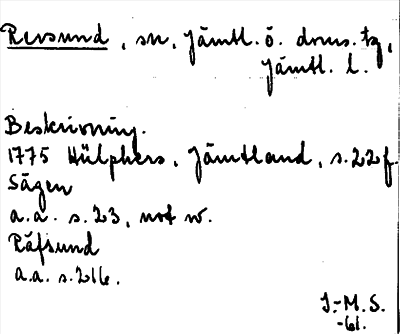 Revsund, sn, Jämtl. ö. doms. tg,
Jämtl. l.
Beskrivning.
1775 Hülphers, Jämtland, s. 22 f.
Sägen
a.a. s. 23, not w.
Räfsund
a.a. s. 216.
I.-M. S.
-61.